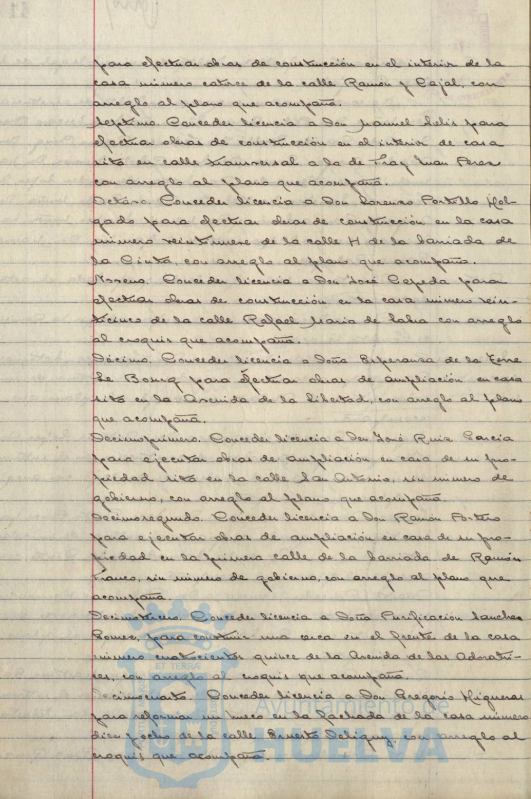 para efectuar obras de construcción en el interior de la
casa número catorce de la calle Ramón y Cajal, con
arreglo al plano que acompaña.
Séptimo. Conceder licencia a Don Manuel Selis para
efectuar obras de construcción en el interior de casa
sita en calle transversal a la de Fray Juan Perez
con arreglo al plano que acompaña.
Octavo. Conceder licencia a Don Lorenzo Portillo Hol-
gado para efectuar obras de construcción en la casa
número veintinueve de la calle H de la barriada de
la Cinta, con arreglo al plano que acompaña.
Noveno. Conceder licencia a Don José Cepeda para
efectuar obras de construcción en la casa número vein-
ticinco de la calle Rafael María de Labra con arreglo
al croquis que acompaña.
Décimo. Conceder licencia a Doña Esperanza de la Torre
Le Bourg para efectuar obras de ampliación en casa
sita en la Avenida de la Libertad, con arreglo al plano
que acompaña.
Decimoprimero. Conceder licencia a Don José Ruiz García
para ejecutar obras de ampliación en casa de su pro-
piedad sita en la calle San Antonio, sin número de
gobierno, con arreglo al plano que acompaña.
Decimosegundo. Conceder licencia a Don Ramón Portero
para ejecutar obras de ampliación en casa de su pro-
piedad en la primera calle de la barriada de Ramón
Franco, sin número de gobierno, con arreglo al plano que
acompaña.
Decimotercero. Conceder licencia a Doña Purificación Sanchez
Gomez, para construir una cerca en el frente de la casa
número cuatrocientos quince de la Avenida de las Adoratri-
ces, con arreglo al croquis que acompaña.
Decimocuarto. Conceder licencia a Don Gregorio Higueras
para reformar un hueco en la fachada de la casa número
diez y ocho de la calle Ernesto Deligny, con arreglo al
croquis que acompaña.
Ayuntamiento de
HUELVA